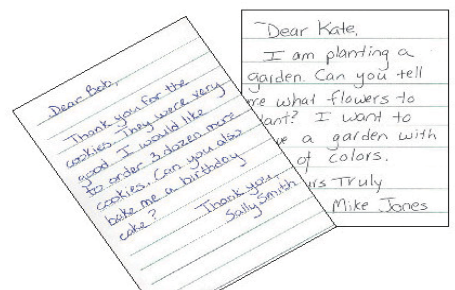 Dear Bob,
Thank you for the
cookies. They were very
good. I would like
to order 3 dozen more
cookies. Can you also
bake me a birthday
cake?
Thank you,
Sally Smith
Dear Kate,
I am planting a
garden. Can you tell
what flowers to
I want to
a garden with
of colors.
Truly
Mike Jones